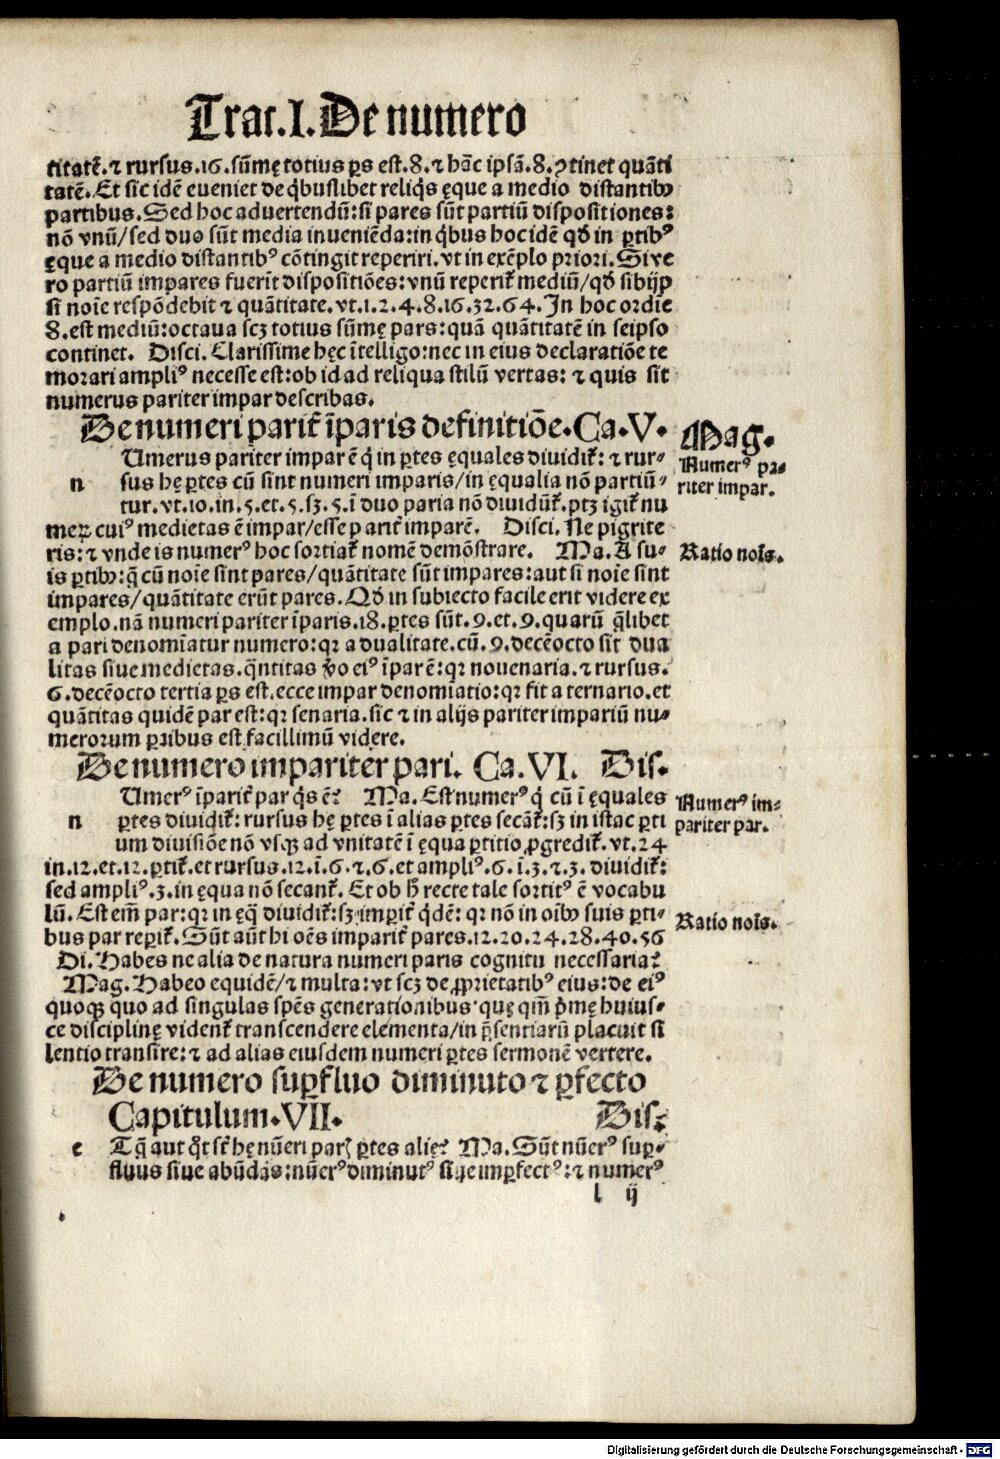 Trac.I.De numero
titatē.⁊ rursus.16.sūmę totius ꝑs est.8.⁊ hāc ipsā.8.ꝯtinet quāti
tatē.Et sic idē eueniet de q̇buslibet reliq̇s ęque a medio distantibꝰ
partibus.Sed hoc aduertendū:si pares sūt partiū dispositiones:
nō vnū/sed duo sūt media inueniēda:in q̇bus hoc idē qđ in ꝑtibꝰ
ęque a medio distantibꝰ cōtingit reperiri.vt in exēplo priori.Si ve
ro partiū impares fuerīt dispositiōes:vnū reperit᷑ mediū/qđ sibijp
si noīe respōdebit ⁊ quātitate.vt.1.2.4.8.16.32.64.In hoc ordīe
8.est mediū:octaua scꝫ totius sūmę pars:quā quātitatē in seipso
continet. Disci.Clarissime hęc ītelligo:nec in eius declaratiōe te
morari ampliꝰ necesse est:ob id ad reliqua stilū vertas: ⁊ quis sit
numerus pariter impar describas.
De numeri parit᷑ īparis definitiōe.Ca.V.
Mag.
Umerus pariter impar ē q̇ in ꝑtes ęquales diuidit᷑: ⁊ rur-
Numerꝰ pa-
n sus hę ꝑtes cū sint numeri imparis/in ęqualia nō partiū-
riter impar.
tur.vt.10.in.5.et.5.sꝫ.5.ī duo paria nō diuidūt᷑.ptꝫ igit᷑ nu
meꝝ cuiꝰ medietas ē impar/esse parit᷑ imparē. Disci.Ne pigrite
ris:⁊ vnde is numerꝰ hoc sortiat᷑ nomē demōstrare. Ma.A su-
Ratio noīs.
is ꝑtibꝰ:q̄ cū noīe sint pares/quātitate sūt impares:aut si noīe sint
impares/quātitate erūt pares.Qđ in subiecto facile erit videre ex
emplo.nā numeri pariter īparis.18.ꝑtes sūt.9.et.9.quarū q̄libet
a pari denomīatur numero:qꝛ a dualitate.cū.9.decēocto sit dua
litas siue medietas.q̄ntitas ṽo eiꝰ īpar ē:qꝛ nouenaria.⁊ rursus.
6.decēocto tertia ꝑs est.ecce impar denomīatio:qꝛ fit a ternario.et
quātitas quidē par est:qꝛ senaria.sic ⁊ in alijs pariter impariū nu-
merorum ꝑtibus est facillimū videre.
De numero impariter pari. Ca.VI. Dis.
Umerꝰ īparit᷑ par q̇s ē? Ma.Est numerꝰ q̇ cū ī ęquales
Numerꝰ im-
n ꝑtes diuidit᷑: rursus hę ꝑtes ī alias ꝑtes secāt᷑:sꝫ in istac ꝑti
pariter par.
um diuisiōe nō vsqꝫ ad vnitatē ī ęqua ꝑtitio ꝓgredit᷑.vt.24
in.12.et.12.ꝑtit᷑.et rursus.12.ī.6.⁊.6.et ampliꝰ.6.ī.3.⁊.3. diuidit᷑:
sed ampliꝰ.3.in ęqua nō secant᷑. Et ob h̄ recte tale sortitꝰ ē vocabu
lū. Est em̄ par:qꝛ in ęq̄ diuidit᷑:sꝫ imparit᷑ q̇dē: qꝛ nō in oībꝰ suis ꝑti-
Ratio noīs.
bus par reperit᷑.Sūt aūt hi oēs imparit᷑ pares.12.20.24.28.40.56
Di.Habes ne alia de natura numeri paris cognitu necessaria?
Mag.Habeo equidē/⁊ multa:vt scꝫ de ꝓprietatibꝰ eius:de eiꝰ
quoqꝫ quo ad singulas spēs generationibus.quę qm̄ ṗmę huius-
ce disciplinę vident᷑ transcendere elementa/in p̄sentiarū placuit si
lentio transire:⁊ ad alias eiusdem numeri ꝑtes sermonē vertere.
De numero suꝑfluo diminuto ⁊ ꝑfecto
Capitulum.VII. Dis.
e Tq̄ aut q̇t sūt hę nūeri paris ꝑtes alię? Ma.Sūt nūerꝰ suꝑ-
fluus siue abūdās:nūerꝰ diminutꝰ siue imꝑfectꝰ:⁊ numerꝰ
l ij
Digitalisierung gefördert durch die Deutsche Forschungsgemeinschaft - DFG